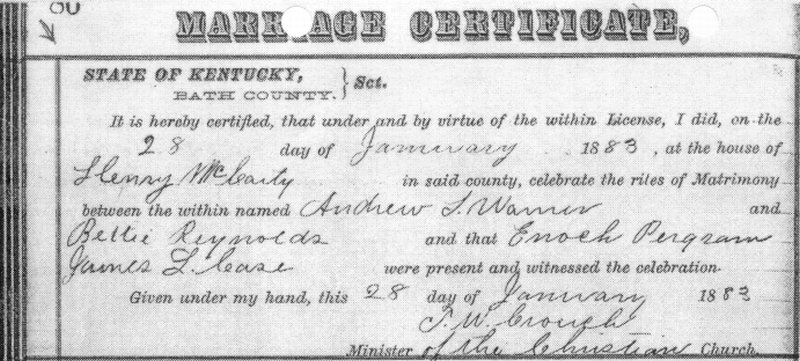 MARRIAGE CERTIFICATE,
STATE OF KENTUCKY,
BATH COUNTY. } Sct.
It is hereby certified, that under and by virtue of the within License, I did, on the
28 day of January 1883, at the house of
Henry McCarty in said county, celebrate the rites of Matrimony
between the within named Andrew S. Warner and
Bettie Reynolds and that Enoch Pergram
James L. Case were present and witnessed the celebration.
Given under my hand, this 28 day of January 1883
T. W. Crouch
Minister of the Christian Church.